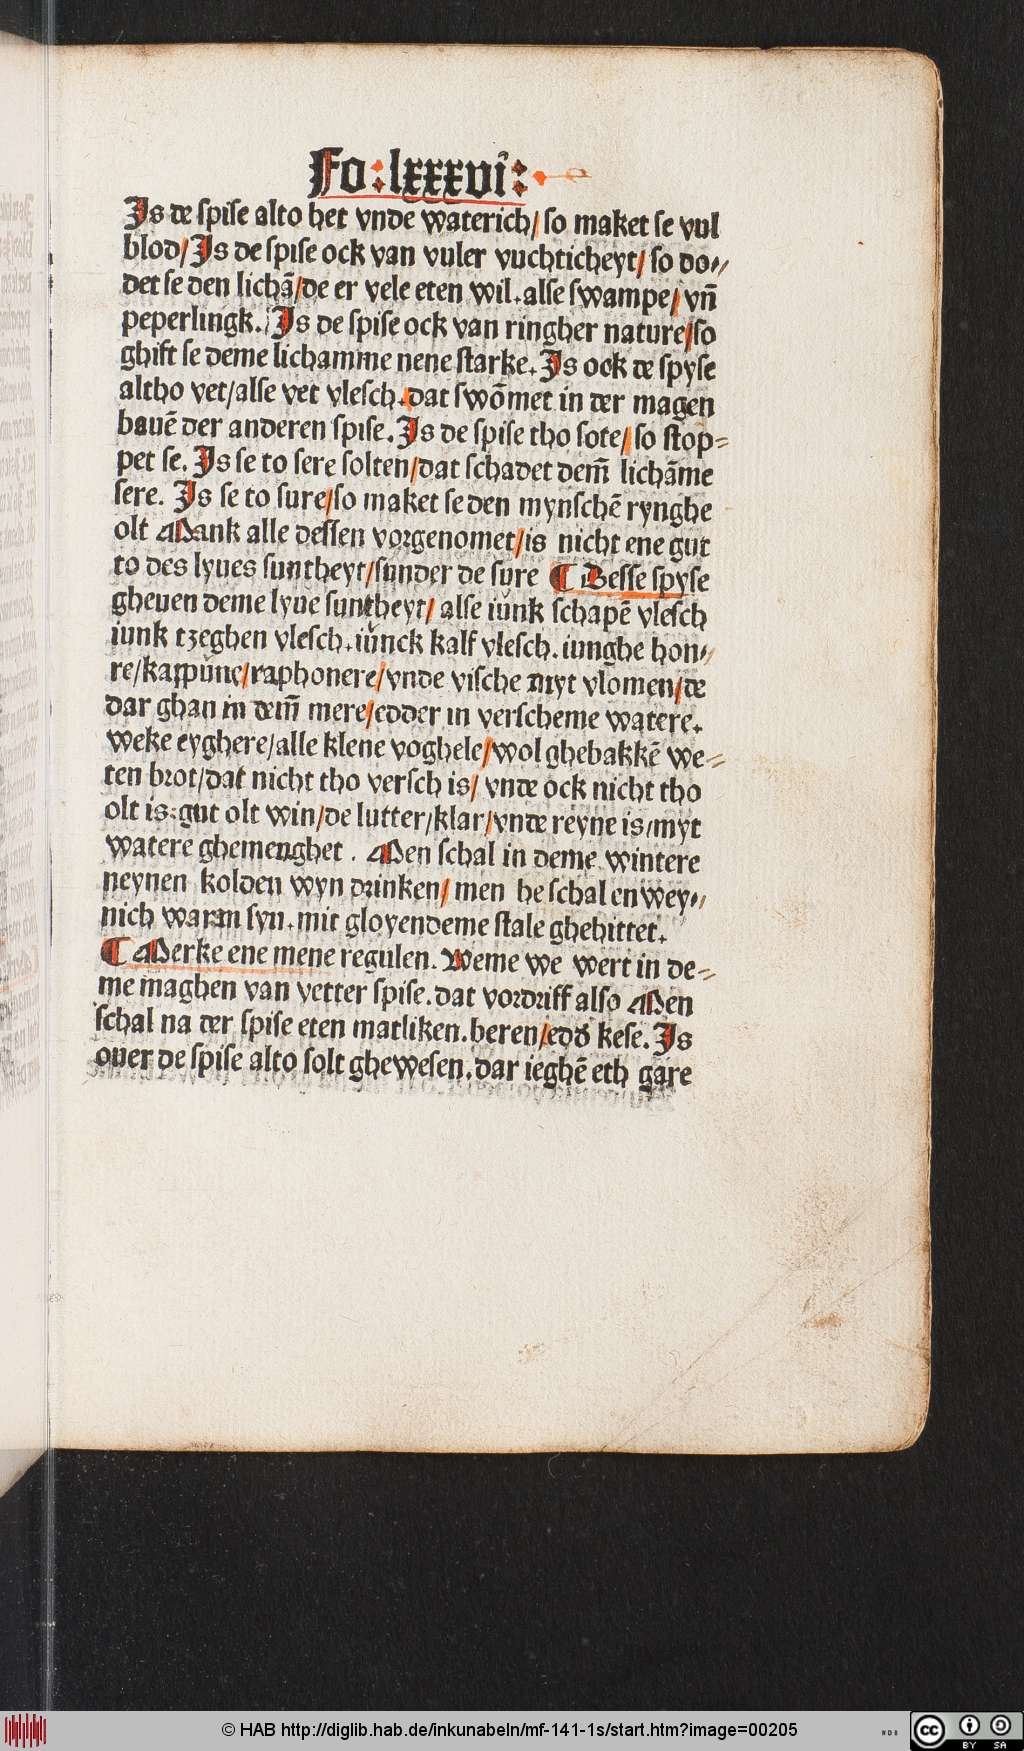 Fo: lxxxvi:
Is de spise alto het vnde waterich/ so maket se vul
blod/ Is de spise ock van vuler vuchticheyt/ so do⸗
det se den lichā/ de er vele eten wil. alse swampe/ vn̄
peperlingk. Is de spise ock van ringher nature/ so
ghift se deme lichamme nene starke. Is ock de spyse
altho vet/ alse vet vlesch. dat swōmet in der magen
bauē der anderen spise. Is de spise tho sote/ so stop⸗
pet se. Is se to sere solten/ dat schadet dem̄ lichāme
sere. Is se to sure/ so maket se den mynschē rynghe
olt Mank alle dessen vorgenomet/ is nicht ene gut
to des lyues suntheyt/ sunder de sure ¶ Desse spyse
gheuen deme lyue suntheyt/ alse iūnk schapē vlesch
iunk tzeghen vlesch. iūnck kalf vlesch. iunghe hon⸗
re/ kappūne/ raphonere/ vnde vische myt vlomen/ de
dar ghan in dem̄ mere/ edder in verscheme watere.
weke eyghere/ alle klene voghele/ wol ghebakkē we⸗
ten brot/ dat nicht tho versch is/ vnde ock nicht tho
olt is: gut olt win/ de lutter/ klar/ vnde reyne is/ myt
watere ghemenghet. Men schal in deme wintere
neynen kolden wyn drinken/ men he schal en wey⸗
nich warm syn. mit gloyendeme stale ghehittet.
¶ Merke ene mene regulen. Weme we wert in de⸗
me maghen van vetter spise. dat vordriff also Men
schal na der spise eten matliken. beren/ edd̓ kese. Is
ouer de spise alto solt ghewesen. dar ieghē eth gare
© HAB http://diglib.hab.de/inkunabeln/mf-141-1s/start.htm?image=00205
WDB
cc BY SA